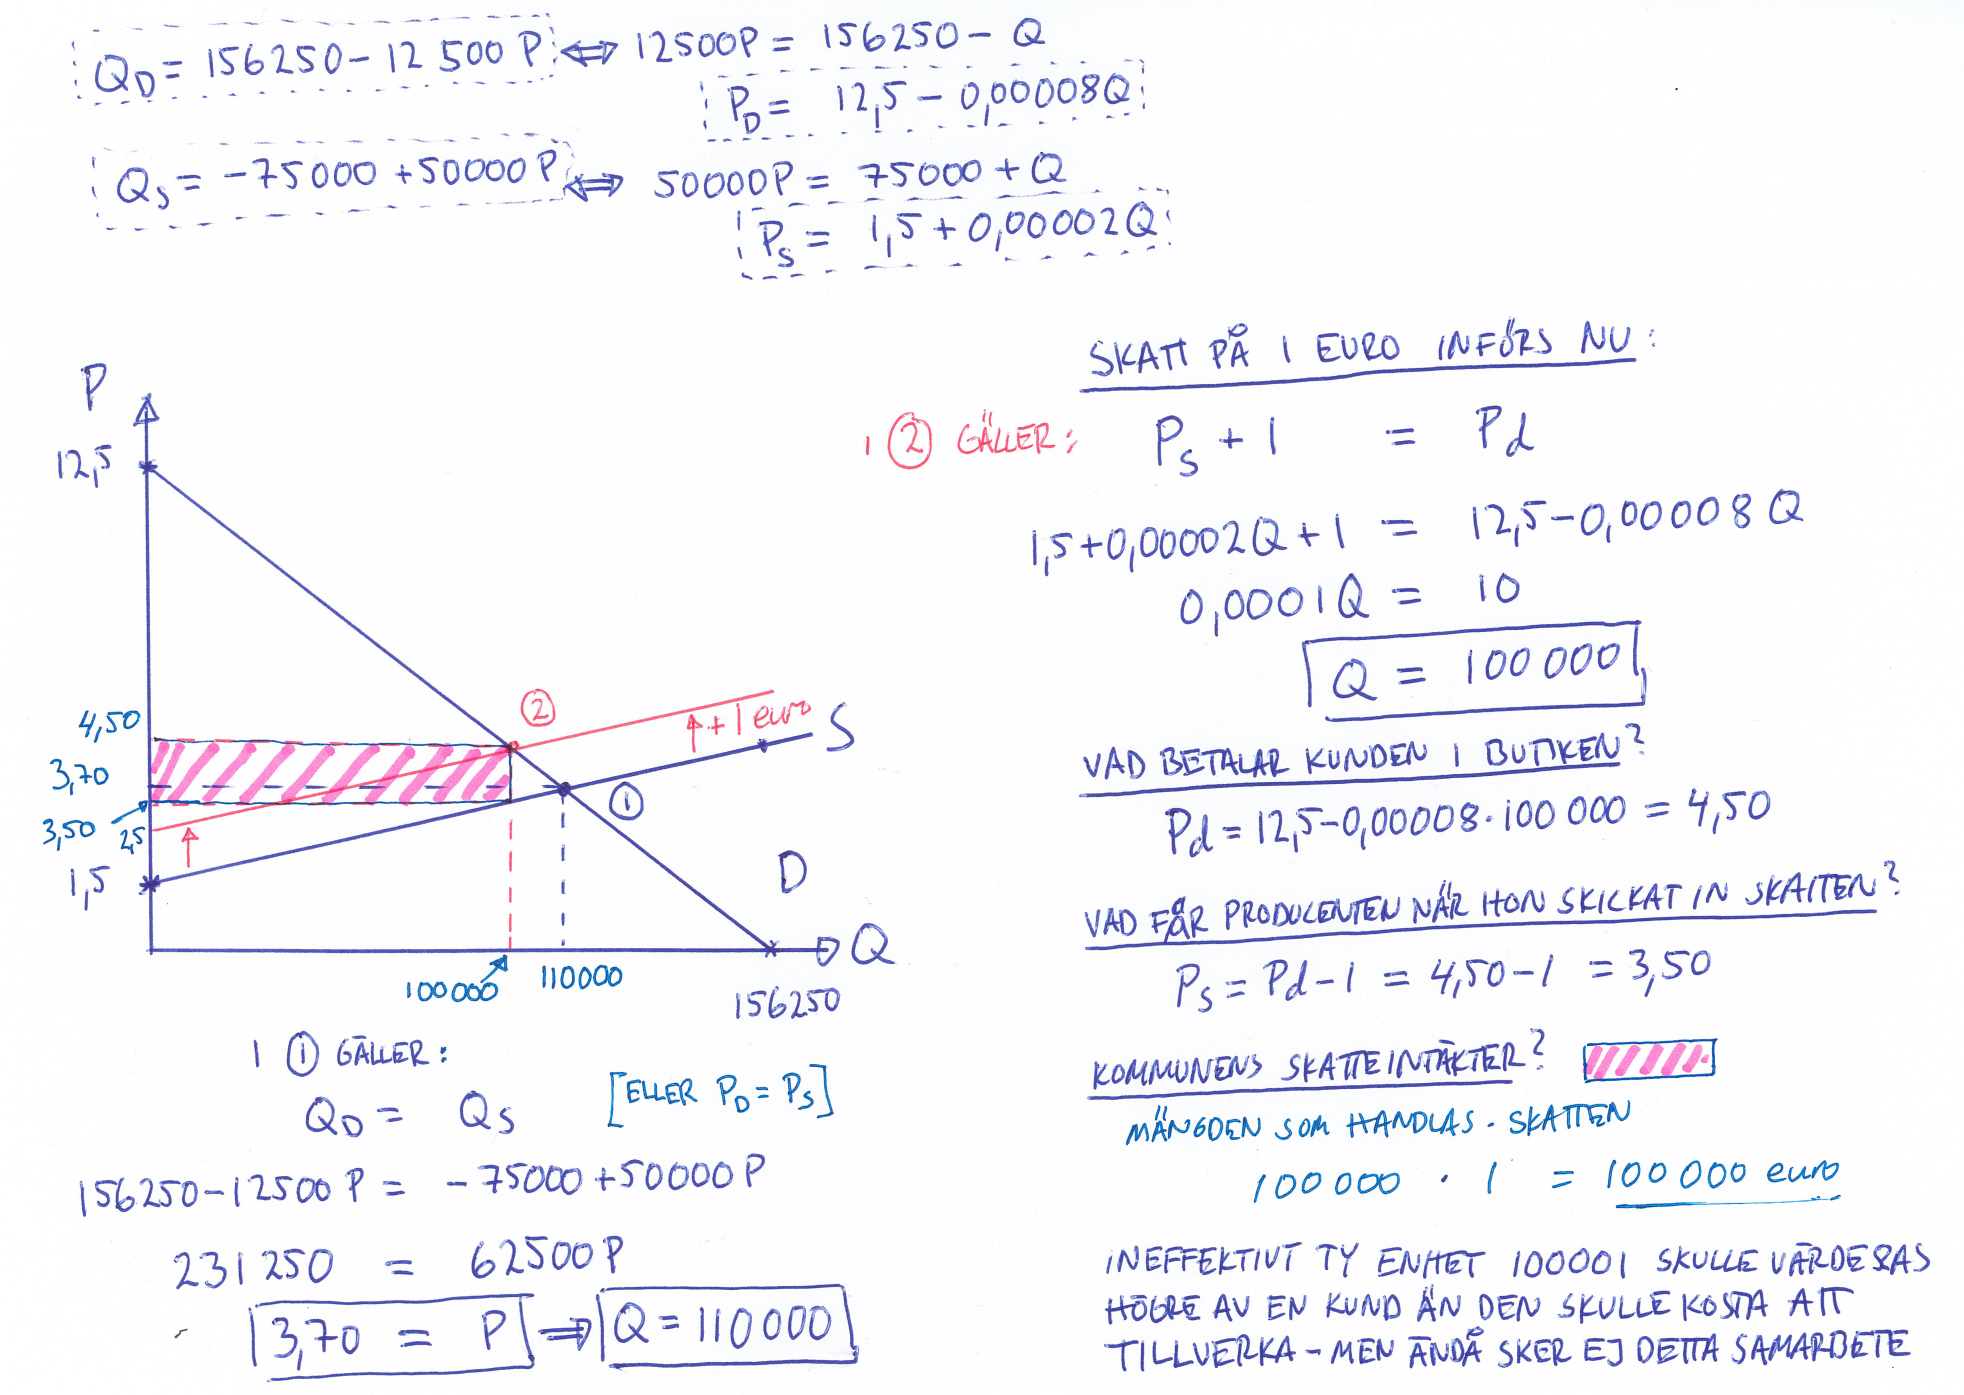 Q_D = 156250 - 12 500 P ⟺ 12500P = 156250 - Q
P_D = 12,5 - 0,00008Q
Q_S = -75000 + 50000 P ⟺ 50000P = 75000 + Q
P_S = 1,5 + 0,00002Q
P
12,5
4,50
3,70
3,50
2,5
1,5
②
↑ + 1 euro
S
①
D
Q
100 000
110000
156250
I ① GÄLLER:
Q_D = Q_S [ELLER P_D = P_S]
156250 - 12500 P = - 75000 + 50000 P
231 250 = 62500 P
3,70 = P ⟹ Q = 110 000
SKATT PÅ 1 EURO INFÖRS NU:
I ② GÄLLER: P_S + 1 = P_d
1,5 + 0,00002Q + 1 = 12,5 - 0,00008 Q
0,0001Q = 10
Q = 100 000
VAD BETALAR KUNDEN I BUTIKEN?
P_d = 12,5 - 0,00008 · 100 000 = 4,50
VAD FÅR PRODUCENTEN NÄR HON SKICKAT IN SKATTEN?
P_S = P_d - 1 = 4,50 - 1 = 3,50
KOMMUNENS SKATTEINTÄKTER?
MÄNGDEN SOM HANDLAS · SKATTEN
100 000 · 1 = 100 000 euro
INEFFEKTIVT TY ENHET 100001 SKULLE VÄRDERAS
HÖGRE AV EN KUND ÄN DEN SKULLE KOSTA ATT
TILLVERKA - MEN ÄNDÅ SKER EJ DETTA SAMARBETE